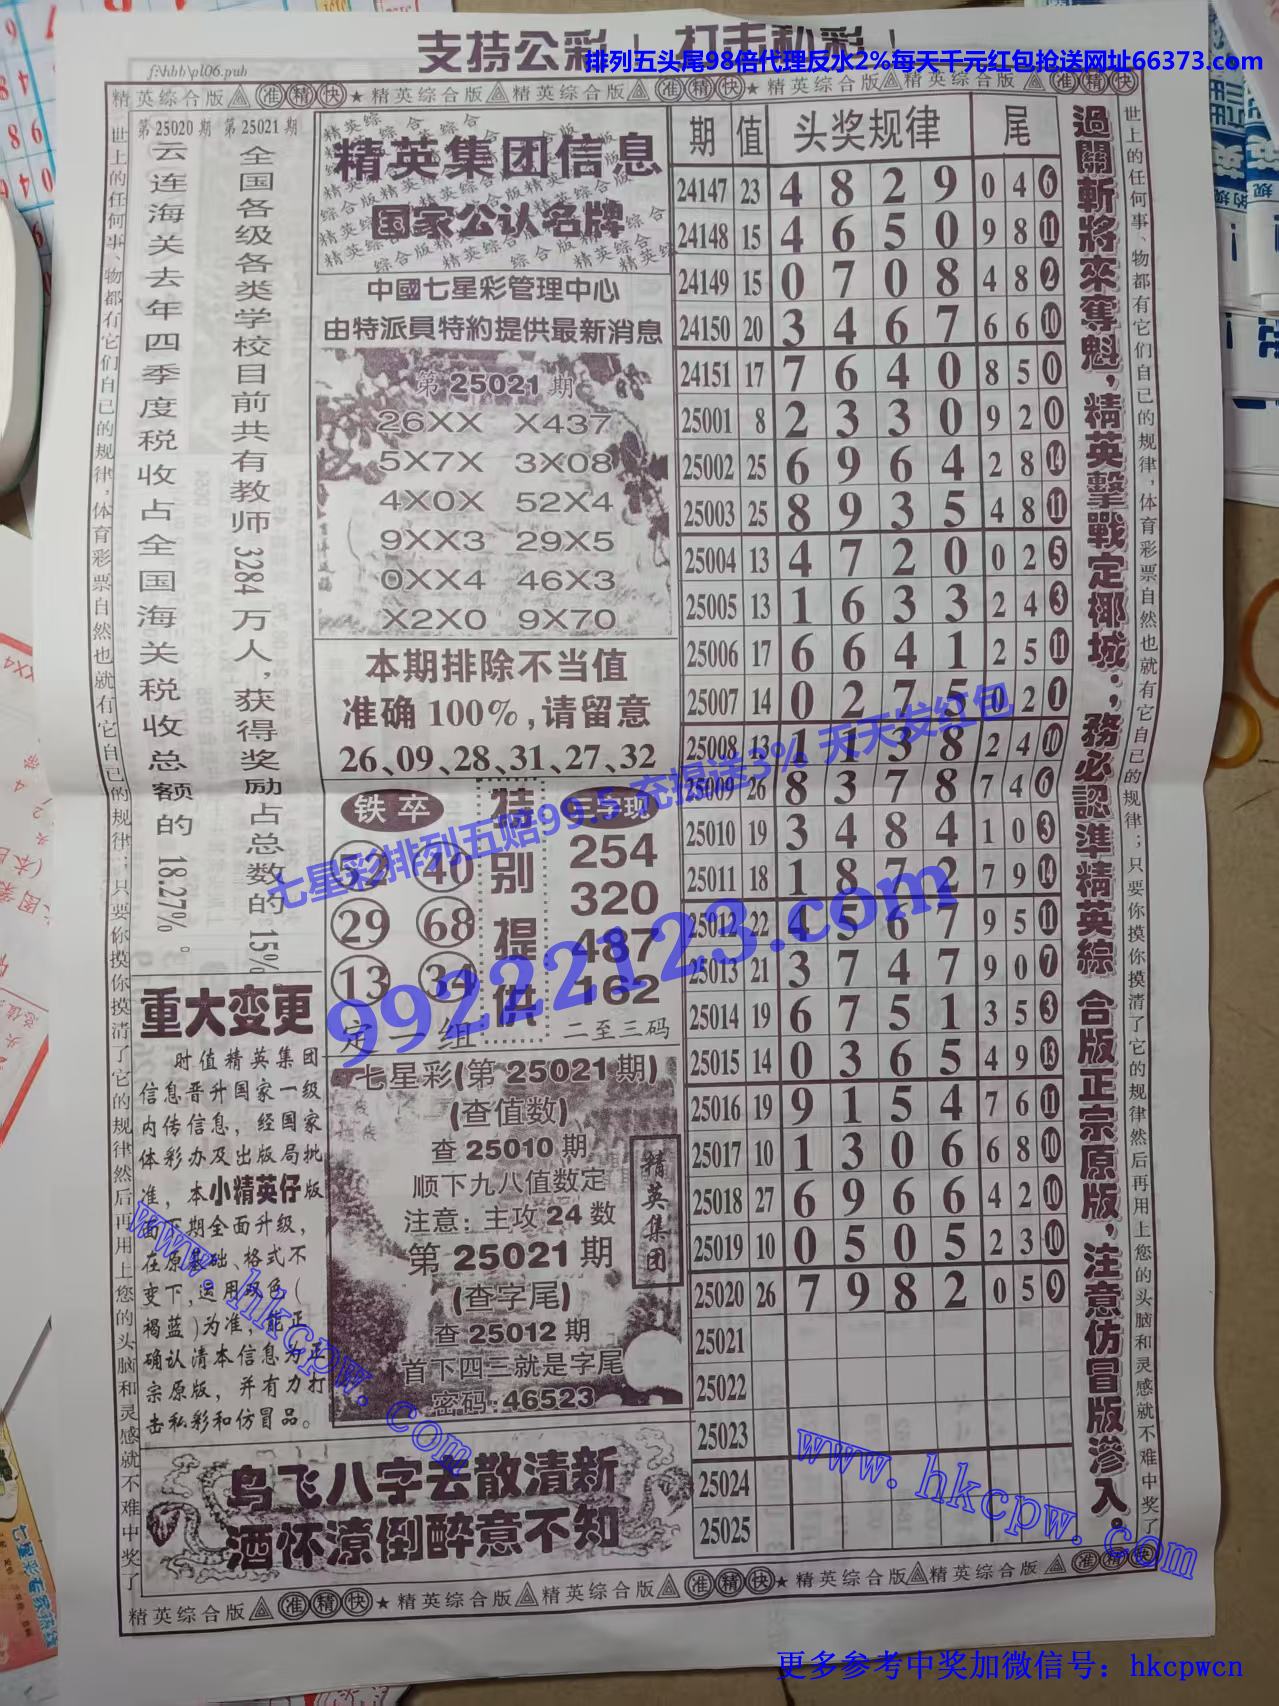 支持公彩！打击私彩！
排列五头尾98倍代理反水2%每天千元红包抢送网址66373.com
f:\hbb\pl06.pub
精英综合版 准精快★精英综合版 精英综合版 准精快★精英综合版 精英综合版 准精快
世上的任何事、物都有它们自己的规律,体育彩票自然也就有它自己的规律;只要你摸你摸清了它的规律然后再用上您的头脑和灵感就不难中奖了
第25020期 第25021期
云连海关去年四季度税收占全国海关税收总额的18.27%。
全国各级各类学校目前共有教师3284万人,获得奖励占总数的15%
精英集团信息
国家公认名牌
中國七星彩管理中心
由特派員特約提供最新消息
第25021期
26XX X437
5X7X 3X08
4X0X 52X4
9XX3 29X5
0XX4 46X3
X2X0 9X70
本期排除不当值
准确100%,请留意
26、09、28、31、27、32
铁卒
52 40
29 68
13 34
定一组
特别提供
二字现
254
320
487
162
二至三码
重大变更
时值精英集团
信息晋升国家一级
内传信息，经国家
体彩办及出版局批
准，本小精英仔版
面下期全面升级,
在原基础、格式不
变下,运用双色(
褐蓝)为准,能正
确认清本信息为正
宗原版，并有力打
击私彩和仿冒品。
七星彩(第25021期)
(查值数)
查25010期
顺下九八值数定
注意：主攻24数
第25021期
(查字尾)
查25012期
首下四三就是字尾
密码:46523
精英集团
鸟飞八字去散清新
酒怀潦倒醉意不知
期 值 头奖规律 尾
24147 23 4 8 2 9 0 4 6
24148 15 4 6 5 0 9 8 11
24149 15 0 7 0 8 4 8 2
24150 20 3 4 6 7 6 6 10
24151 17 7 6 4 0 8 5 0
25001 8 2 3 3 0 9 2 0
25002 25 6 9 6 4 2 8 14
25003 25 8 9 3 5 4 8 11
25004 13 4 7 2 0 0 2 5
25005 13 1 6 3 3 2 4 3
25006 17 6 6 4 1 2 5 11
25007 14 0 2 7 5 0 2 1
25008 13 1 1 3 8 2 4 10
25009 26 8 3 7 8 7 4 6
25010 19 3 4 8 4 1 0 3
25011 18 1 8 7 2 7 9 14
25012 22 4 5 6 7 9 5 11
25013 21 3 7 4 7 9 0 7
25014 19 6 7 5 1 3 5 3
25015 14 0 3 6 5 4 9 13
25016 19 9 1 5 4 7 6 11
25017 10 1 3 0 6 6 8 10
25018 27 6 9 6 6 4 2 10
25019 10 0 5 0 5 2 3 10
25020 26 7 9 8 2 0 5 9
25021
25022
25023
25024
25025
過關斬將來奪魁,精英擊戰定椰城;務必認準精英綜合版正宗原版,注意仿冒版滲入。
世上的任何事、物都有它们自己的规律,体育彩票自然也就有它自己的规律;只要你摸你摸清了它的规律然后再用上您的头脑和灵感就不难中奖了
七星彩排列五赔99.5 充提送3% 天天发红包
99222123.com
www.hkcpw.com
www.hkcpw.com
精英综合版 准精快★精英综合版 精英综合版 准精快★精英综合版 精英综合版 准精快
更多参考中奖加微信号：hkcpwcn